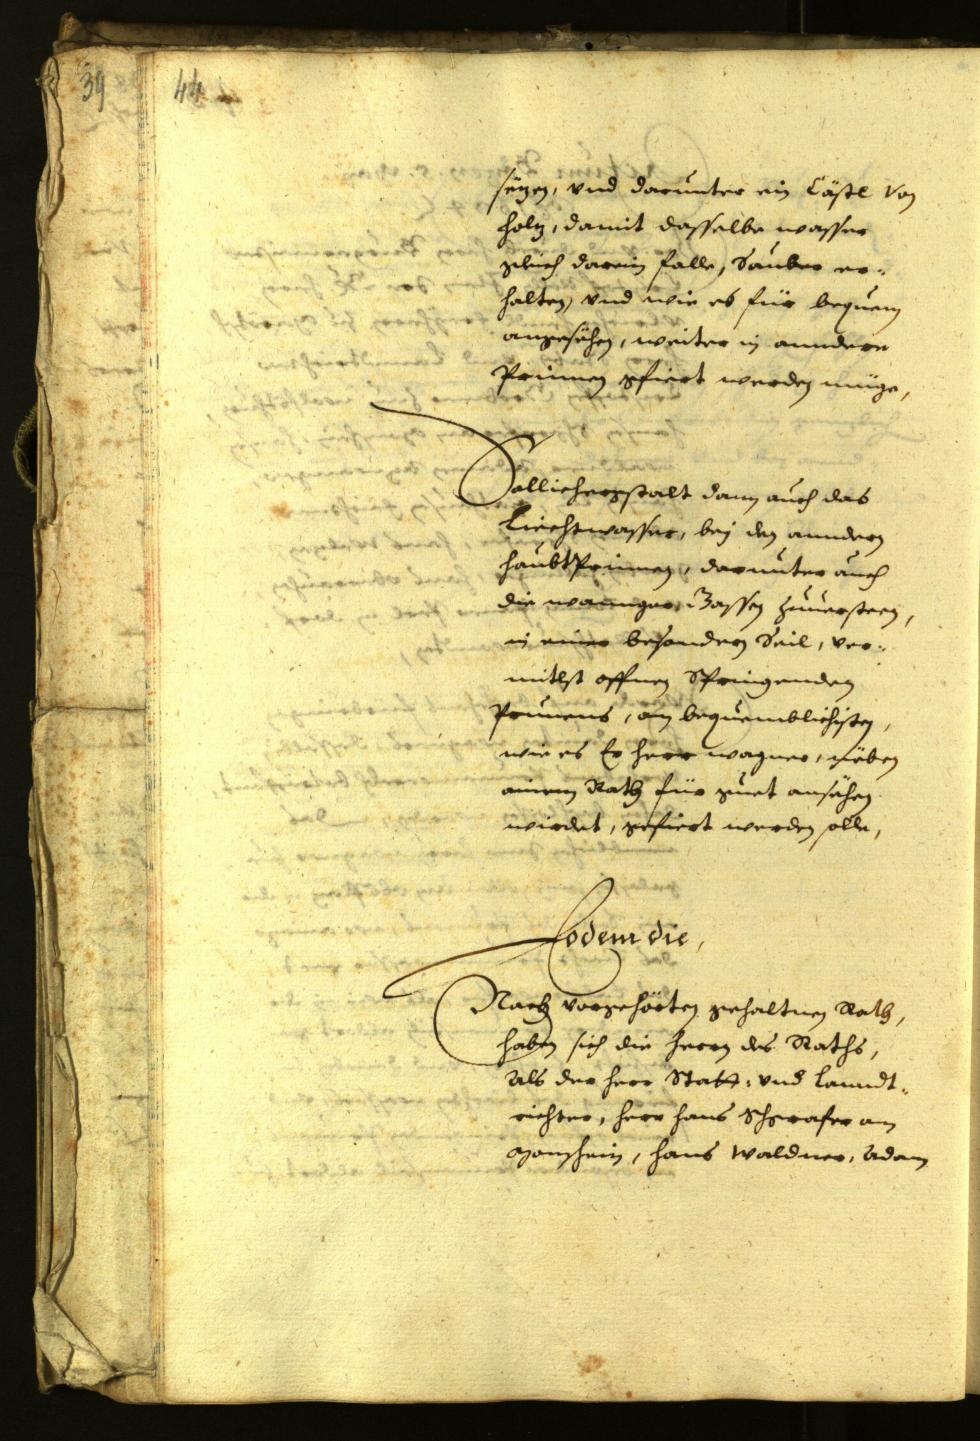 39
44
sezen, vnd darunter ein Cästl von
holz, damit dasselbe wasser
gleich darein falle, Sauber er-
halten, vnd wie es für bequem
angesehen, weiter in anndere
Prinnen gfiert werden müge,
Sollichergstalt dann auch das
Liechtwasser, bej den anndern
haubtPrinnen, darunter auch
die wanngar. Gassen zuuersteen,
in einer besondern Seil, ver-
mitlst offnen Springenden
Prunens, am bequemblichisten,
wie es Er herr wagner, neben
ainem Rath für guet ansehen
wirdet, gefiert werden solle,
Eodem die,
Nach vorgehörten gehaltnen Rath,
haben sich die herrn des Raths,
Als der herr Statt- vnd Lanndt-
richter, herr hans Schgrafer am
hans Waldner, Adam